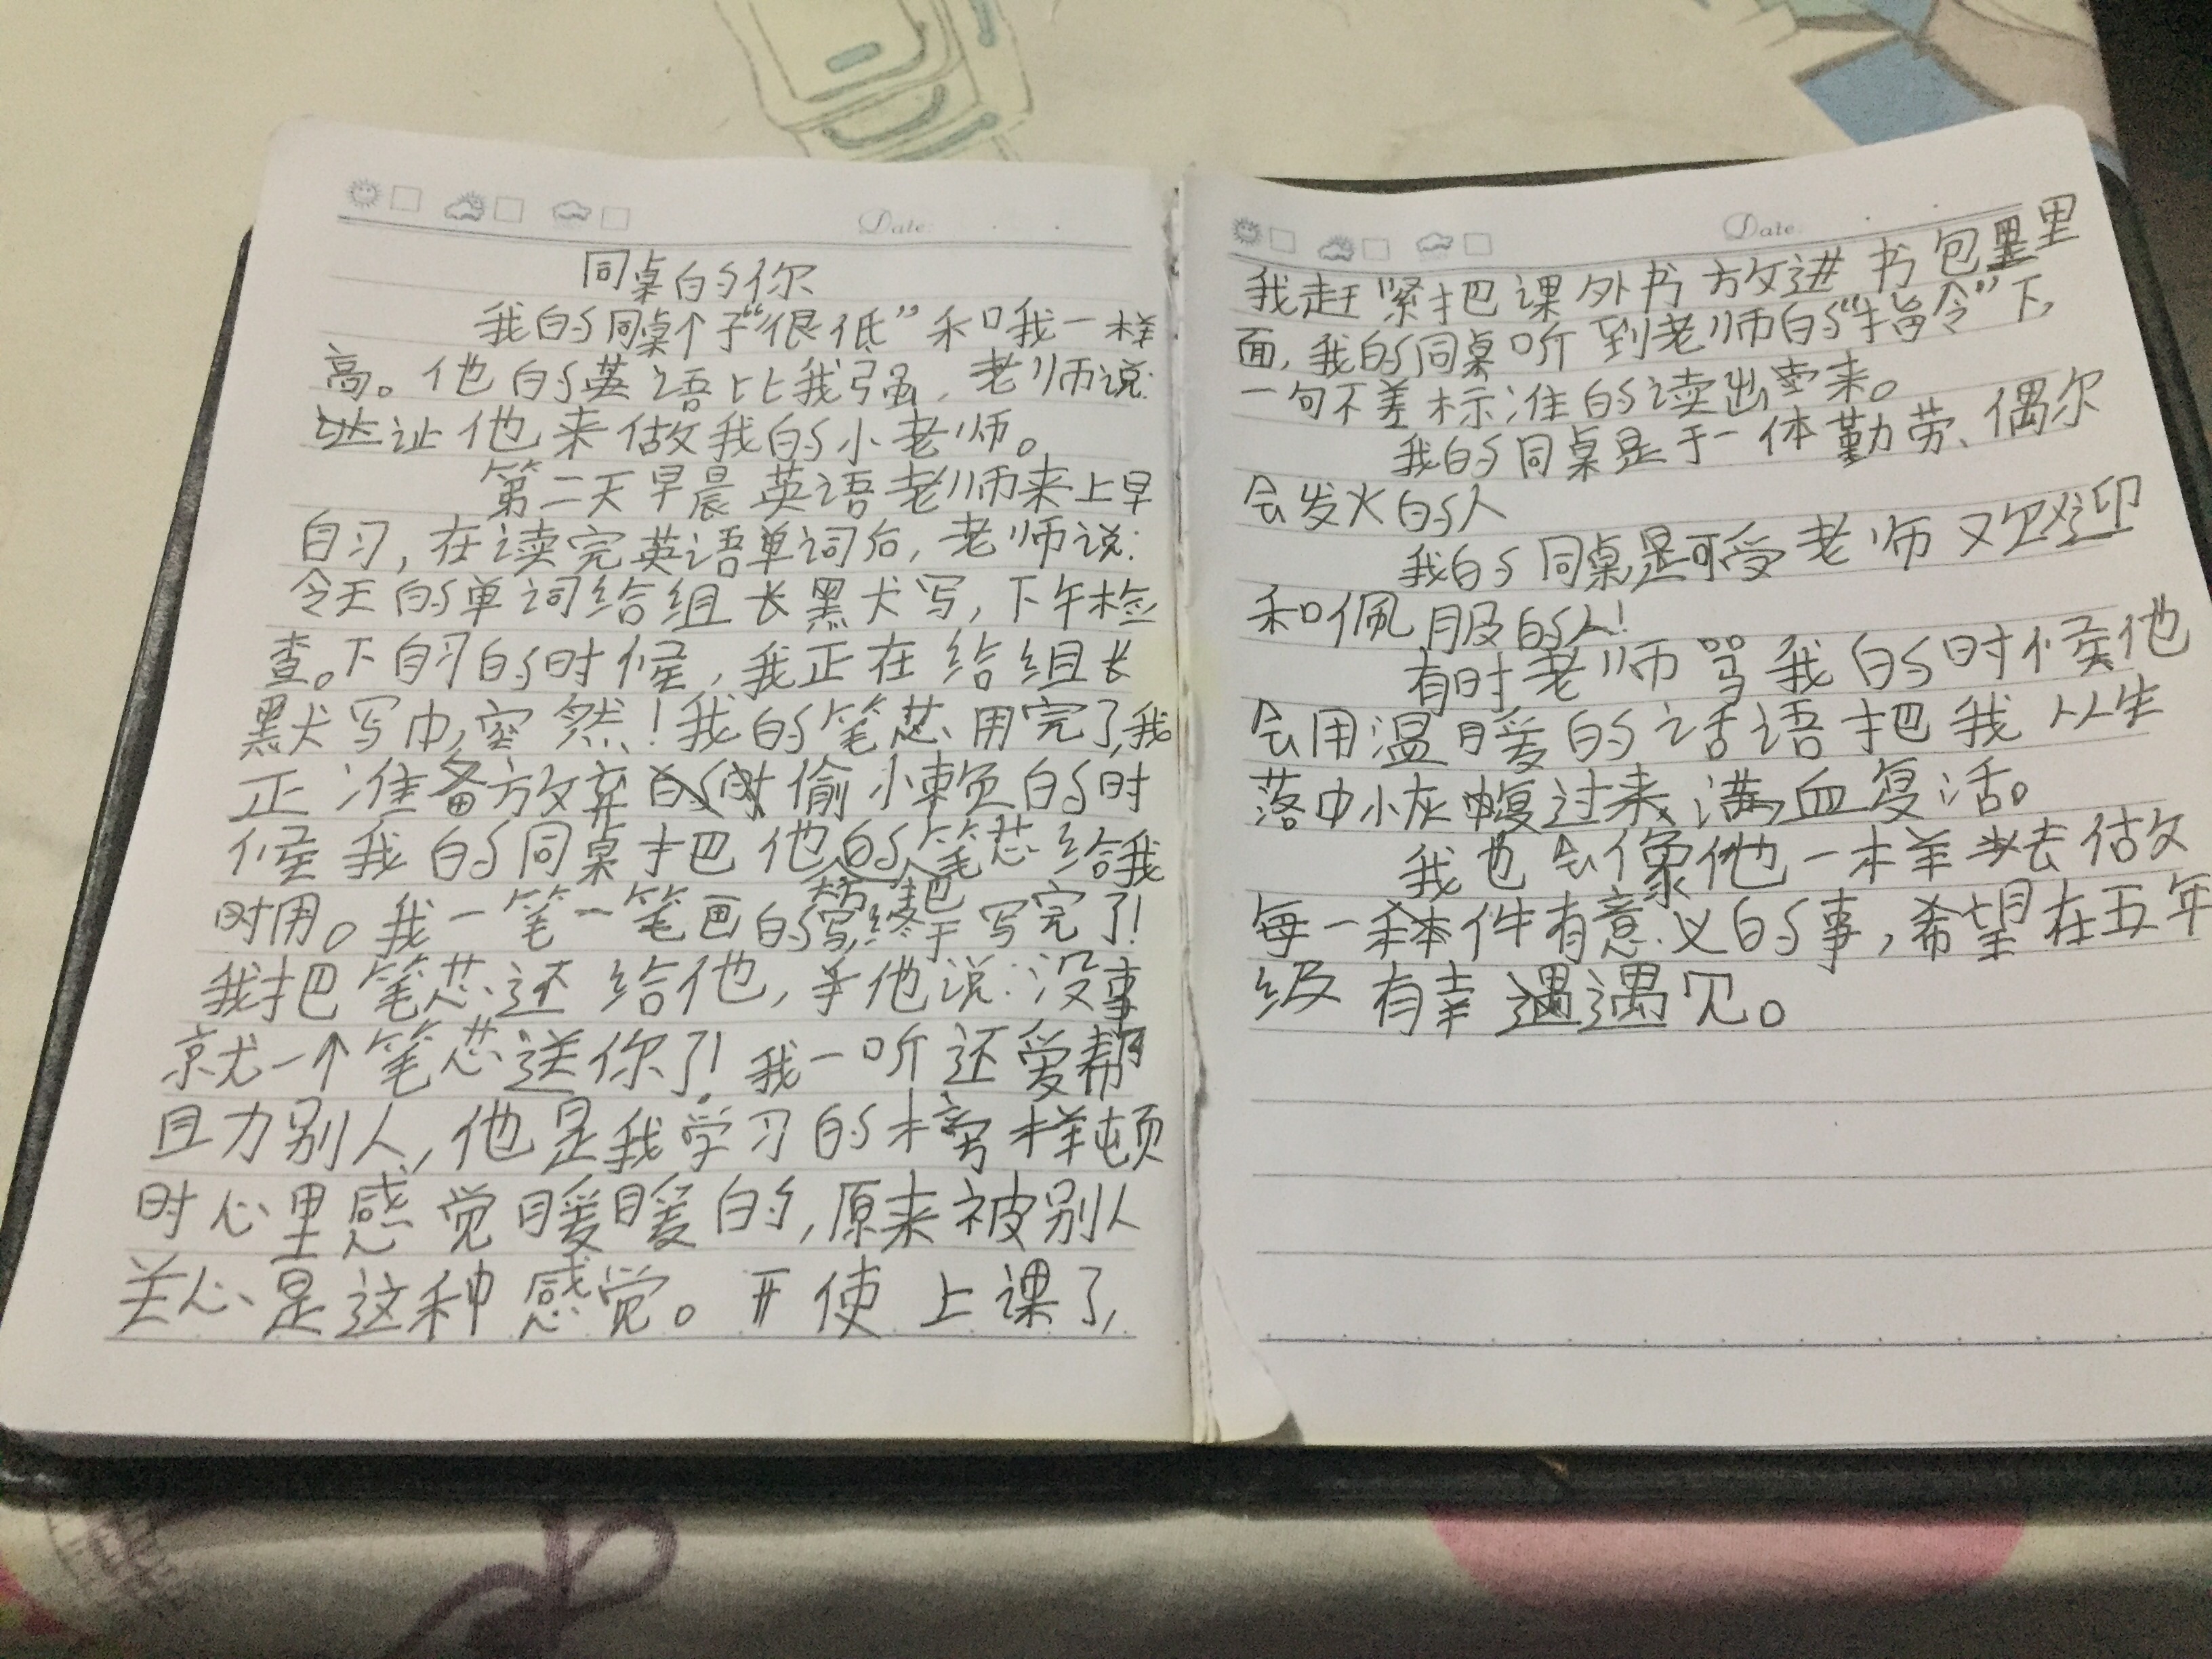 Date:
同桌的你
我的同桌个子“很低”和我一样
高。他的英语比我强，老师说:
让他来做我的小老师。
第二天早晨英语老师来上早
自习，在读完英语单词后，老师说:
今天的单词给组长默写，下午检
查。下自习的时候，我正在给组长
默写中，突然！我的笔芯用完了，我
正准备放弃偷小赖的时
候我的同桌把他的笔芯给我
时用。我一笔一笔画的终于写完了！
我把笔芯还给他，他说:没事
就一个笔芯送你了！我一听还爱帮
助别人，他是我学习的榜样顿
时心里感觉暖暖的，原来被别人
关心是这种感觉。开使上课了，
Date:
我赶紧把课外书放进书包里
面，我的同桌听到老师的“指令”下，
一句不差标准的读出来。
我的同桌是于一体勤劳、偶尔
会发火的人
我的同桌是可受老师欢迎
和佩服的人！
有时老师骂我的时候他
会用温暖的话语把我从生
落中小灰过来，满血复活。
我也会像他一样去做
每一件有意义的事，希望在五年
级有幸遇见。